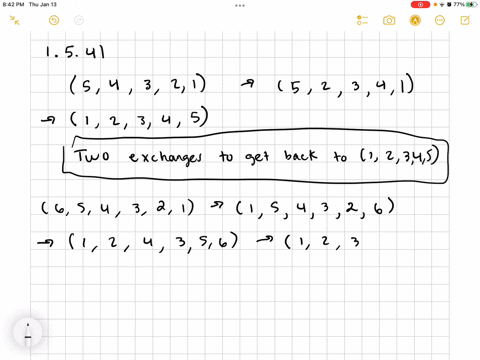 8:42 PM Thu Jan 13
77%
1.5.41
(5, 4, 3, 2, 1) → (5, 2, 3, 4, 1)
→ (1, 2, 3, 4, 5)
Two exchanges to get back to (1, 2, 3, 4, 5)
(6, 5, 4, 3, 2, 1) → (1, 5, 4, 3, 2, 6)
→ (1, 2, 4, 3, 5, 6) → (1, 2, 3